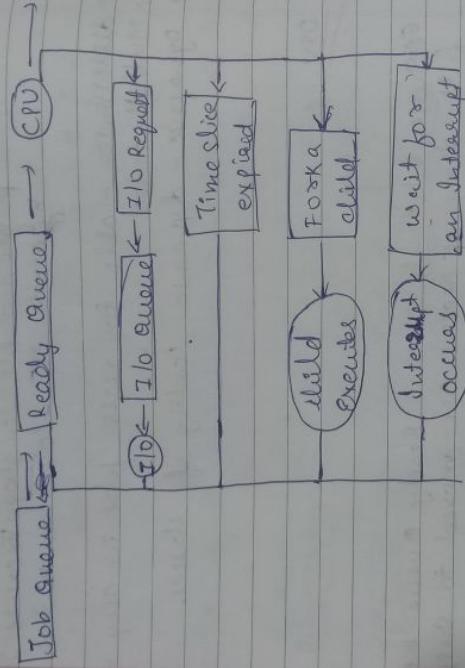 Job Queue
Ready Queue
CPU
I/O
I/O Queue
I/O Request
Time slice
expired
child
Executes
Fork a
child
Interrupt
occurs
Wait for
an Interrupt